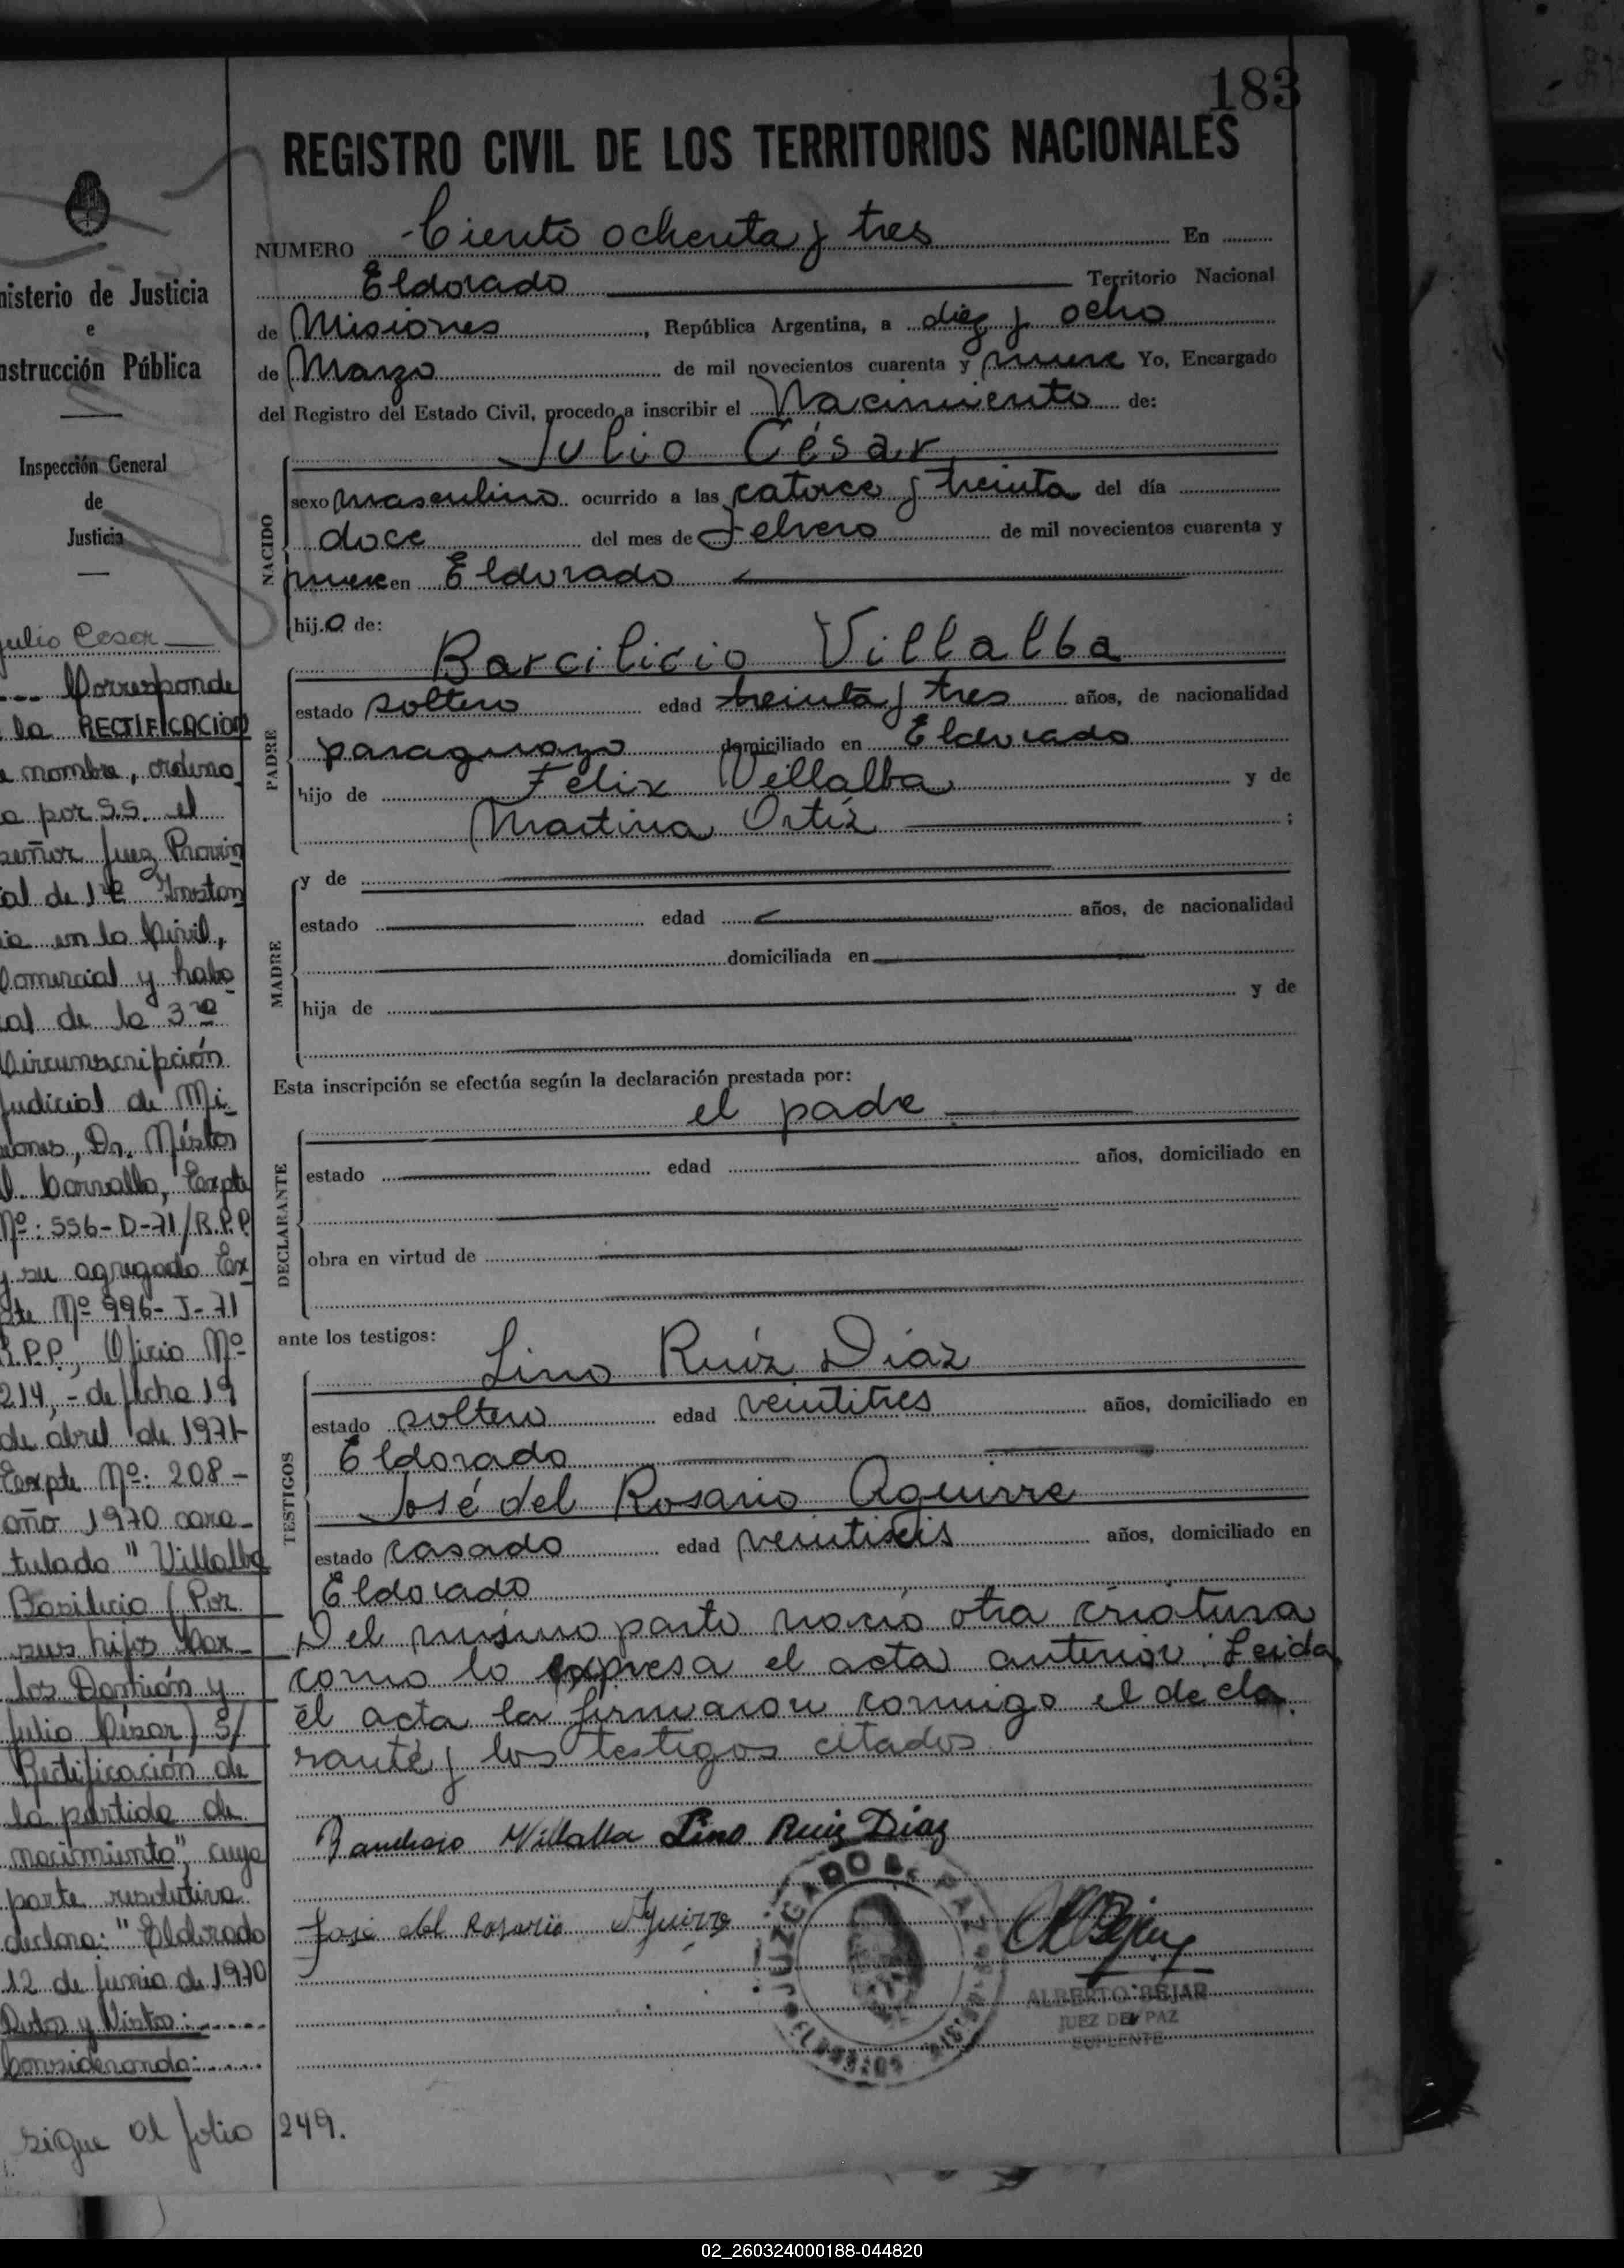 183
REGISTRO CIVIL DE LOS TERRITORIOS NACIONALES
NUMERO Ciento ochenta y tres En
Eldorado Territorio Nacional
de Misiones, República Argentina, a diez y ocho
de Marzo de mil novecientos cuarenta y nueve Yo, Encargado
del Registro del Estado Civil, procedo a inscribir el Nacimiento de:
Julio César
NACIDO
sexo masculino ocurrido a las catorce y treinta del día
doce del mes de Febrero de mil novecientos cuarenta y
nueve en Eldorado
hijo de:
Barcilicio Villalba
PADRE
estado soltero edad treinta y tres años, de nacionalidad
paraguayo domiciliado en Eldorado
hijo de Felix Villalba y de
Martina Ortíz ;
MADRE
y de
estado edad años, de nacionalidad
domiciliada en
hija de y de
Esta inscripción se efectúa según la declaración prestada por:
el padre
DECLARANTE
estado edad años, domiciliado en
obra en virtud de
ante los testigos:
TESTIGOS
Lino Ruíz Díaz
estado soltero edad veintitres años, domiciliado en
Eldorado
José del Rosario Aguirre
estado casado edad veintiseis años, domiciliado en
Eldorado
Del mismo parto nació otra criatura
como lo expresa el acta anterior. Leida
el acta la firmaron conmigo el decla
rante y los testigos citados
Villalba Lino Ruiz Diaz
José del Rosario Aguirre
JUZGADO DE PAZ
ALBERTO BEJAR
JUEZ DE PAZ
SUPLENTE
nisterio de Justicia
e
nstrucción Pública
Inspección General
de
Justicia
Julio Cesar
Corresponde
la RECTIFICACION
e nombre, ordena
a por S.S. el
señor Juez Provin
al de 1ra Instan
ia en lo Civil,
Comercial y Labo
al de la 3ra
Circunscripción
Judicial de Mi-
iones, Dr. Néstor
Carvallo, Expte
Nº: 556-D-71/R.P.P
y su agregado Ex
pte Nº 996-J-71
R.P.P., Oficio Nº
214,- de fecha 19
de abril de 1971-
Expte Nº: 208-
año 1970 cara-
tulado "Villalba
Basilicio (Por
sus hijos Car-
los Damián y
Julio César) S/
Rectificación de
la partida de
nacimiento", cuya
parte resolutiva
declara: "Eldorado
12 de Junio de 1970
Autos y Vistos:.....
Considerando:.....
sigue al folio 249.
02_260324000188-044820